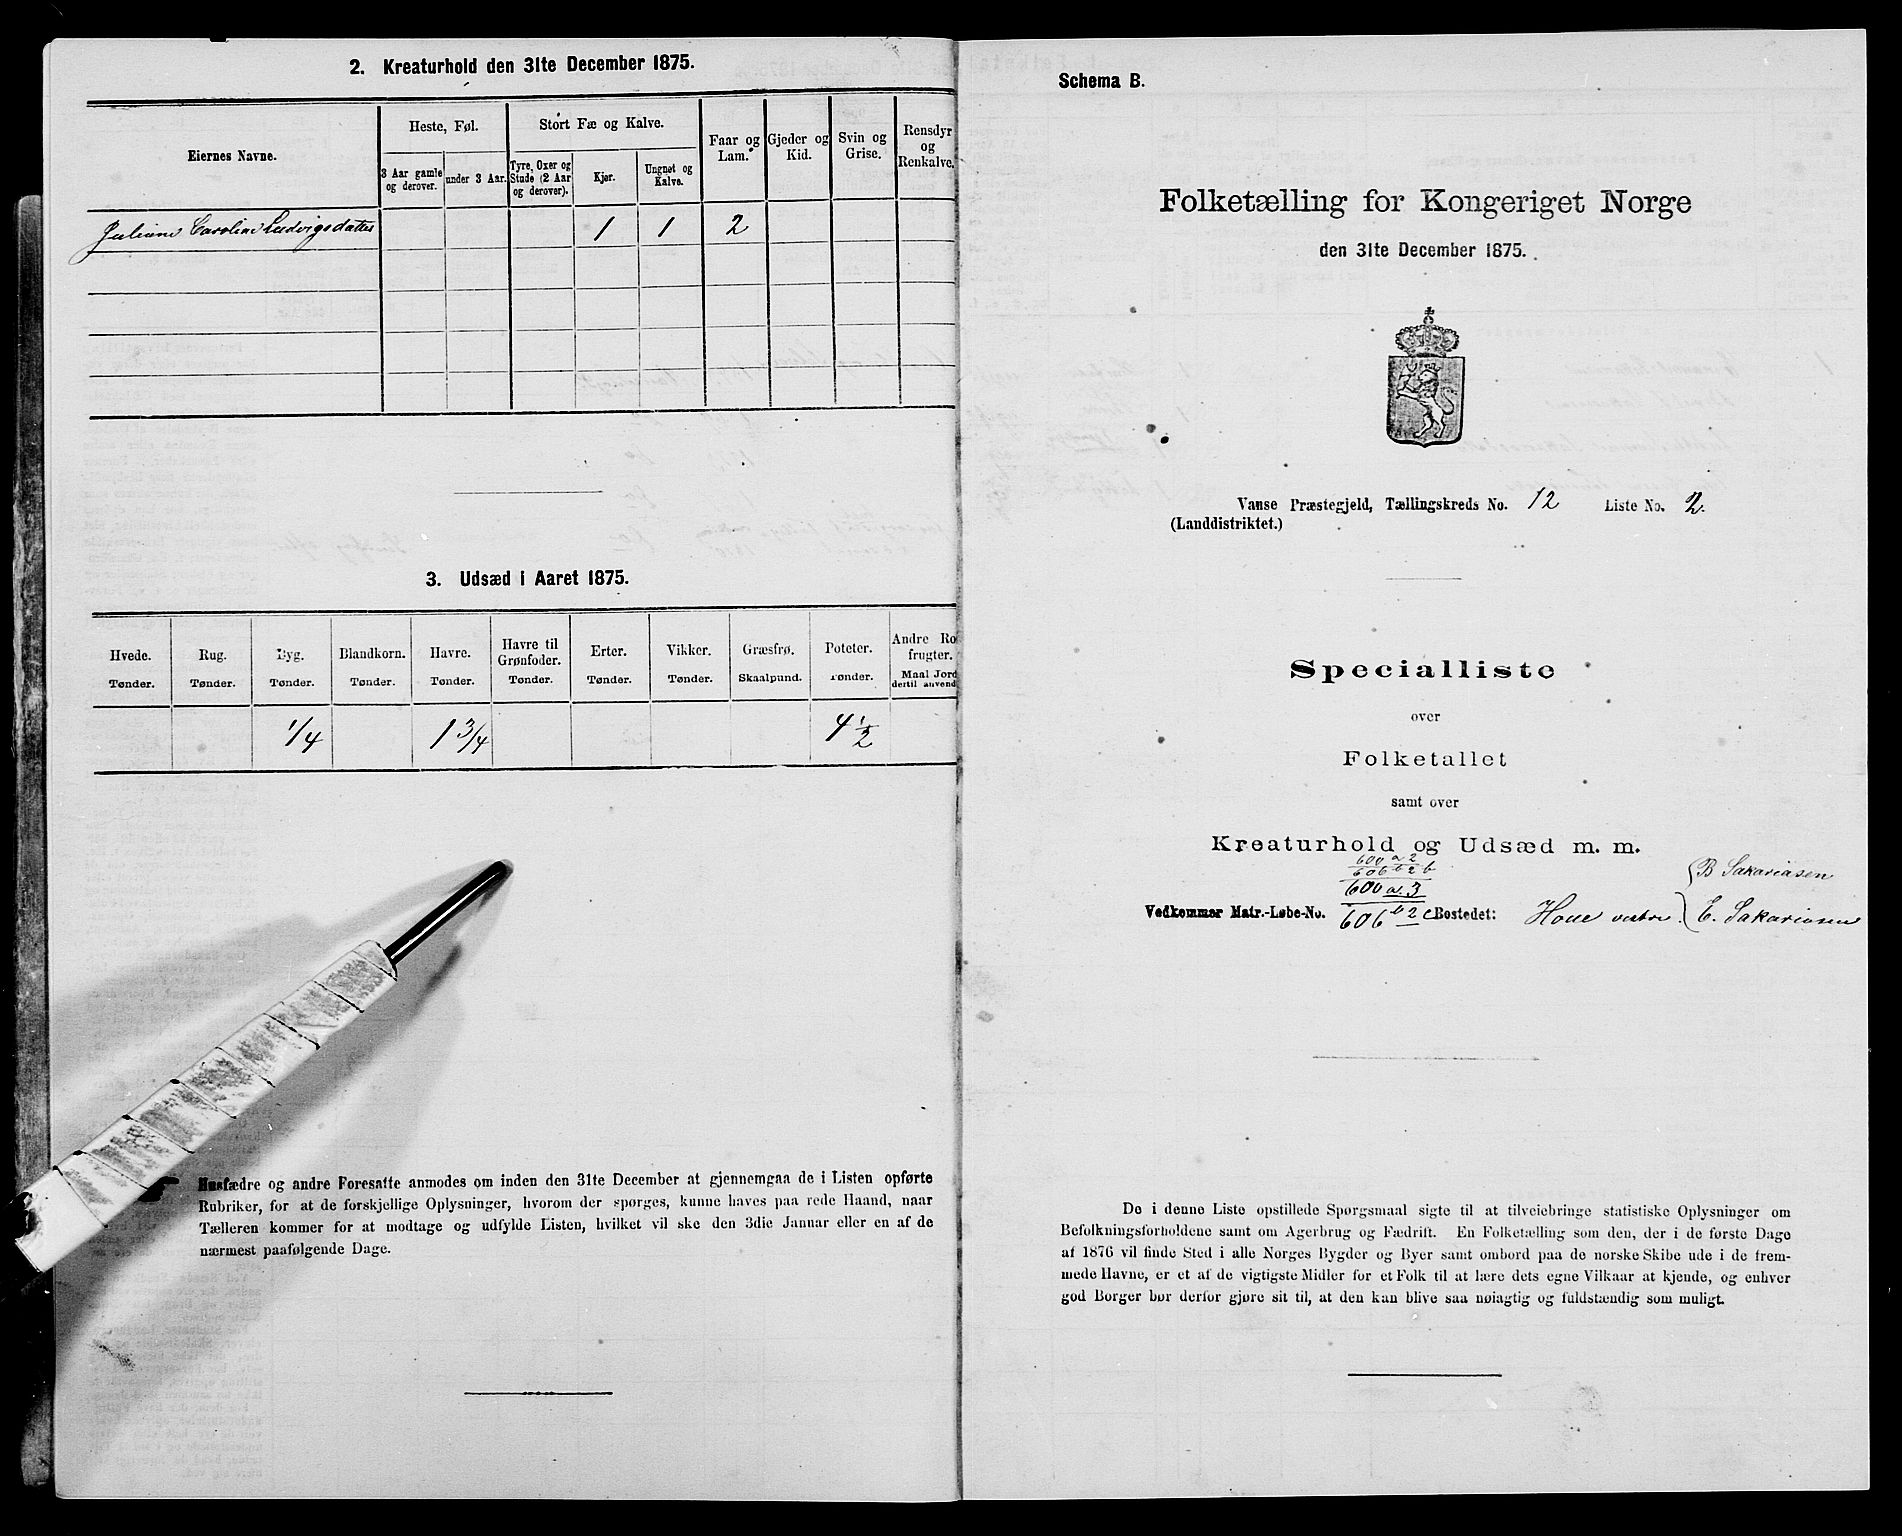 2. Kreaturhold den 31te December 1875.
Eiernes Navne.
Heste, Føl.
Stort Fæ og Kalve.
Faar og Lam.
Gjeder og Kid.
Svin og Grise.
Rensdyr og Renkalve.
3 Aar gamle og derover.
under 3 Aar.
Tyre, Oxer og Stude (2 Aar og derover).
Kjør.
Ungnøt og Kalve.
Juliane Caroline Ludvigsdatter 1 1 2
3. Udsæd i Aaret 1875.
Hvede. Rug. Byg. Blandkorn. Havre. Havre til Grønfoder. Erter. Vikker. Græsfrø. Poteter. Andre Ro frugter.
Tønder. Tønder. Tønder. Tønder. Tønder. Tønder. Tønder. Tønder. Skaalpund. Tønder. Maal Jord dertil anvend
1/4 1 3/4 4 1/2
Husfædre og andre Foresatte anmodes om inden den 31te December at gjennemgaa de i Listen opførte
Rubriker, for at de forskjellige Oplysninger, hvorom der spørges, kunne haves paa rede Haand, naar
Tælleren kommer for at modtage og udfylde Listen, hvilket vil ske den 3die Januar eller en af de
nærmest paafølgende Dage.
Schema B.
Folketælling for Kongeriget Norge
den 31te December 1875.
Vanse Præstegjeld, Tællingskreds No. 12 Liste No. 2.
(Landdistriktet.)
Specialliste
over
Folketallet
samt over
Kreaturhold og Udsæd m. m.
600 a 2
606 b 2 b
600 a. 3
B Sakariasen
Vedkommer Matr.-Løbe-No. 606 b 2 c Bostedet: Houe vestre. E. Sakariasen
De i denne Liste opstillede Spørgsmaal sigte til at tilveiebringe statistiske Oplysninger om
Befolkningsforholdene samt om Agerbrug og Fædrift. En Folketælling som den, der i de første Dage
af 1876 vil finde Sted i alle Norges Bygder og Byer samt ombord paa de norske Skibe ude i de frem-
mede Havne, er et af de vigtigste Midler for et Folk til at lære dets egne Vilkaar at kjende, og enhver
god Borger bør derfor gjøre sit til, at den kan blive saa nøiagtig og fuldstændig som muligt.